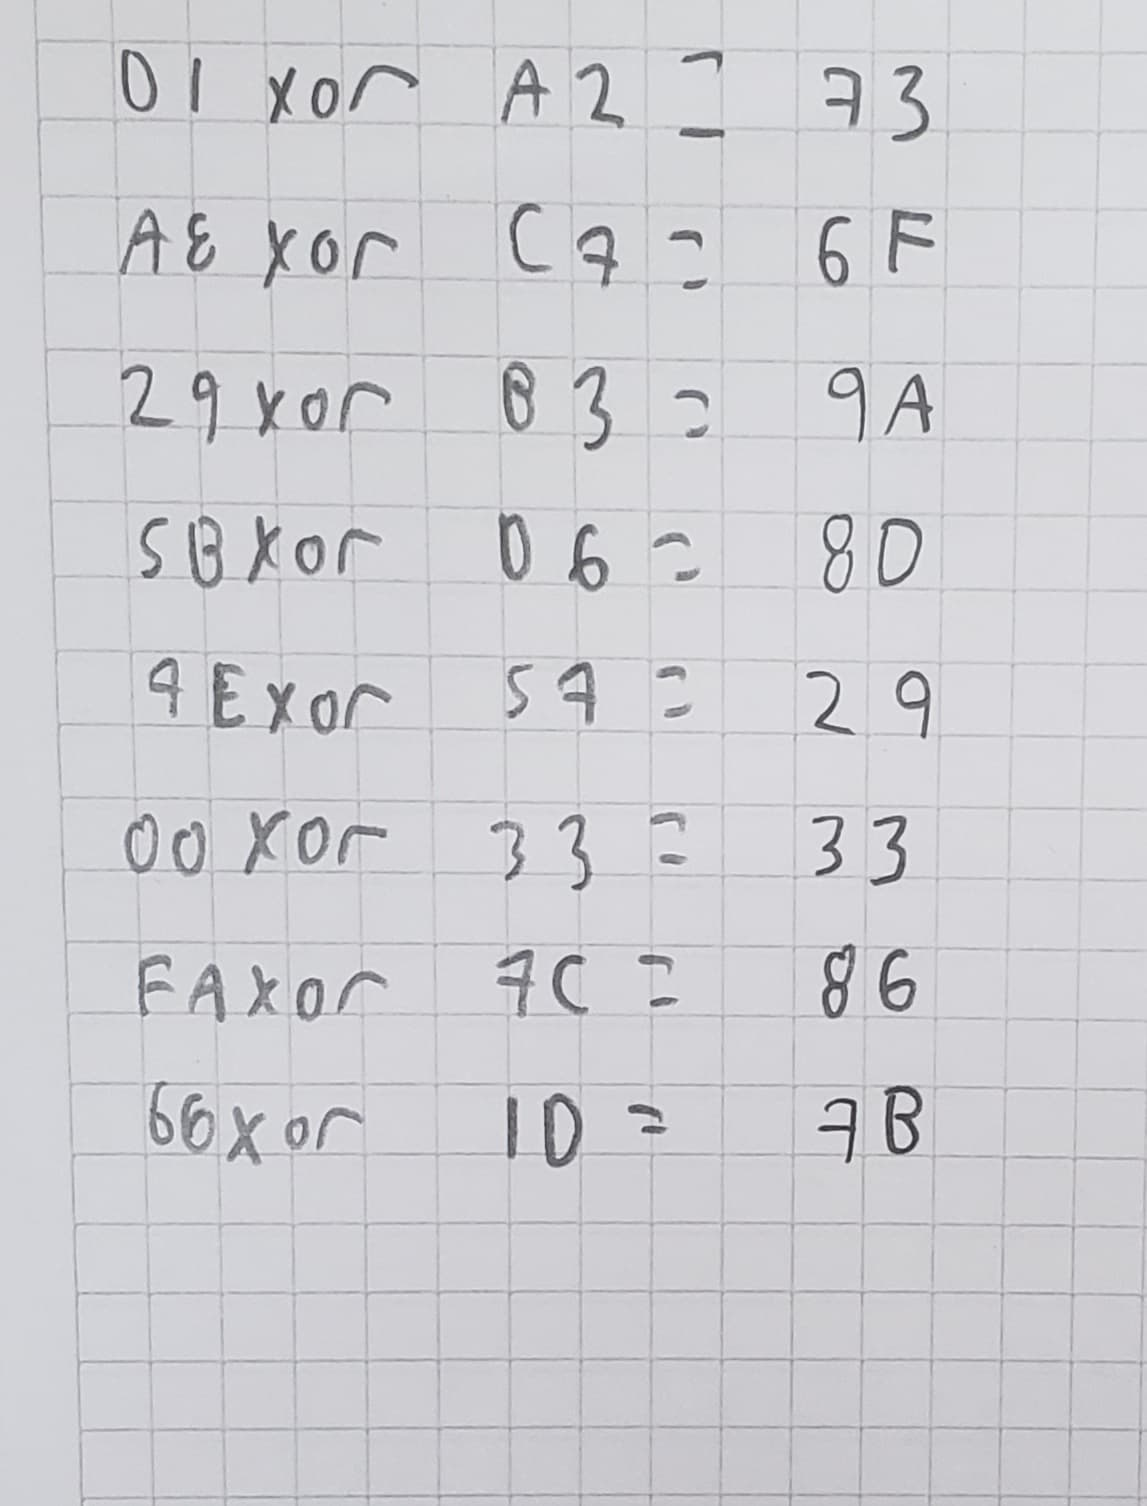 D1 xor A2 = 73
A8 xor C7 = 6F
29 xor B3 = 9A
5B xor D6 = 8D
7E xor 57 = 29
00 xor 33 = 33
FA xor 7C = 86
66 xor 1D = 7B